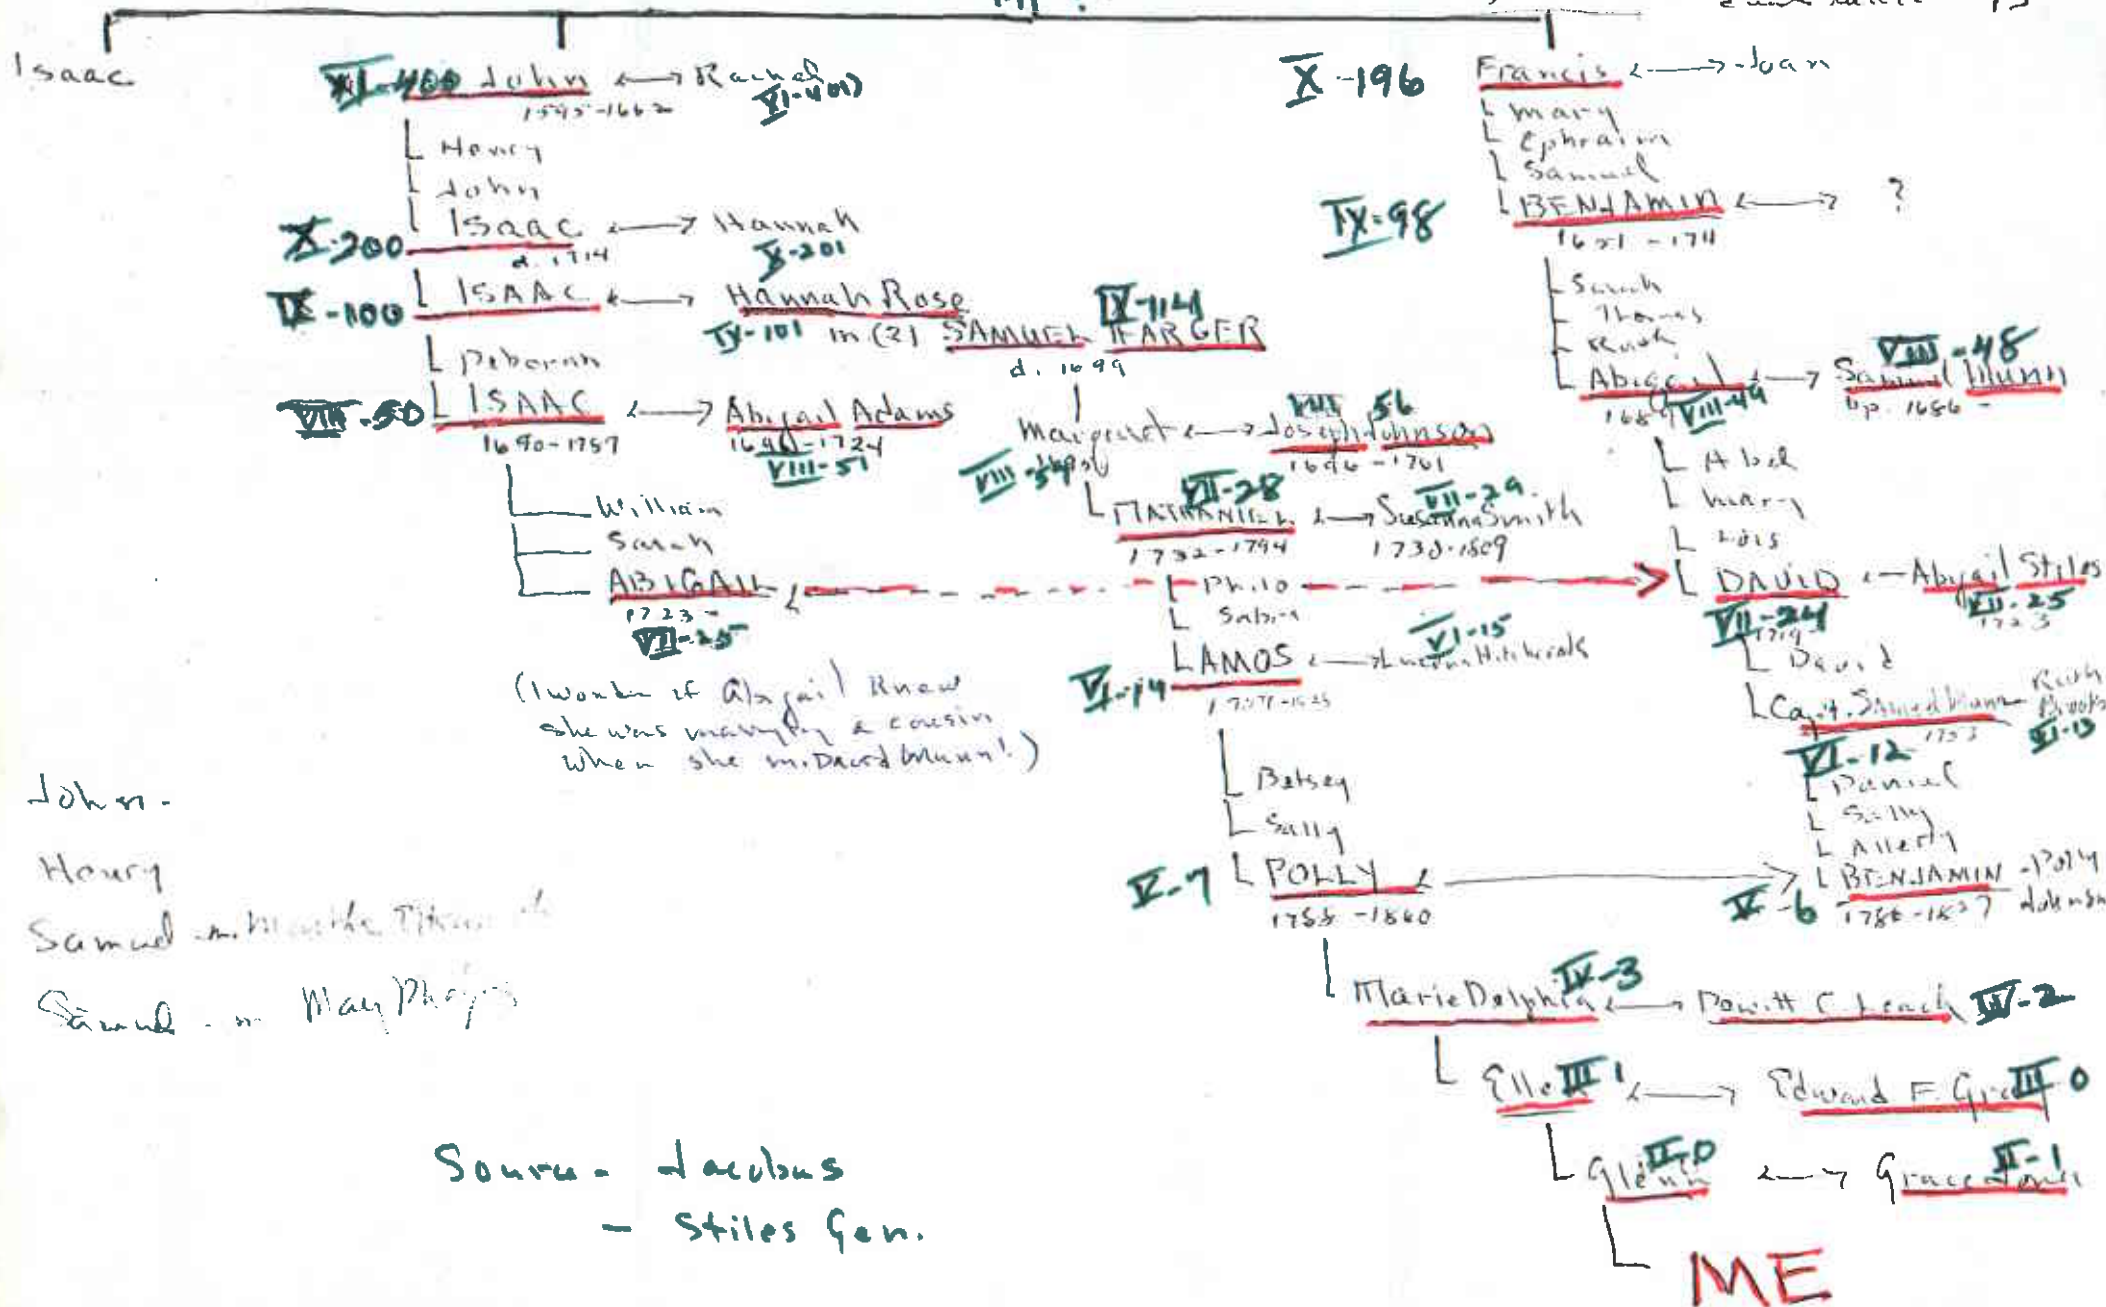 Isaac
XI-400 John ←→ Rachel
XI-401
1595-1662
Henry
John
X-200 Isaac ←→ Hannah
d. 1714
X-201
IX-100 ISAAC ←→ Hannah Rose
IX-101 m (2) SAMUEL FARGER
IX-114
d. 1699
Deborah
VIII-50 ISAAC ←→ Abigail Adams
1690-1757
VIII-51
William
Sarah
ABIGAIL
1723-
VII-25
(I wonder if Abigail knew
she was marrying a cousin
when she m. David Munn!)
Margaret ←→ Joseph Johnson
VIII 56
NATHANIEL ←→ Susanna Smith
VII-28
VII-29
1732-1794
1730-1809
Philo
Sabra
VI-14 AMOS ←→
VI-15
Betsey
Sally
V-7 POLLY
X-196
Francis ←→ Joan
Mary
Ephraim
Samuel
IX-98 BENJAMIN ←→ ?
Sarah
Thomas
Ruth
Abigail ←→ Samuel Munn
VIII-49
VIII-48
Abel
Mary
Lois
DAVID - Abigail Stiles
VII-24
VII-25
David
Capt. Samuel Munn - Ruth
VI-12
VI-13
Daniel
Sally
V-6 BENJAMIN - Polly
Johnson
Marie Dolphia ←→ Dewitt C. Leach IV-2
IV-3
Ellen III 1 ←→ Edward F. III 0
Glenn II-0 ←→ Grace II-1
ME
John-
Henry
Samuel - m.
Samuel - m
Source - Jacobus
- Stiles Gen.